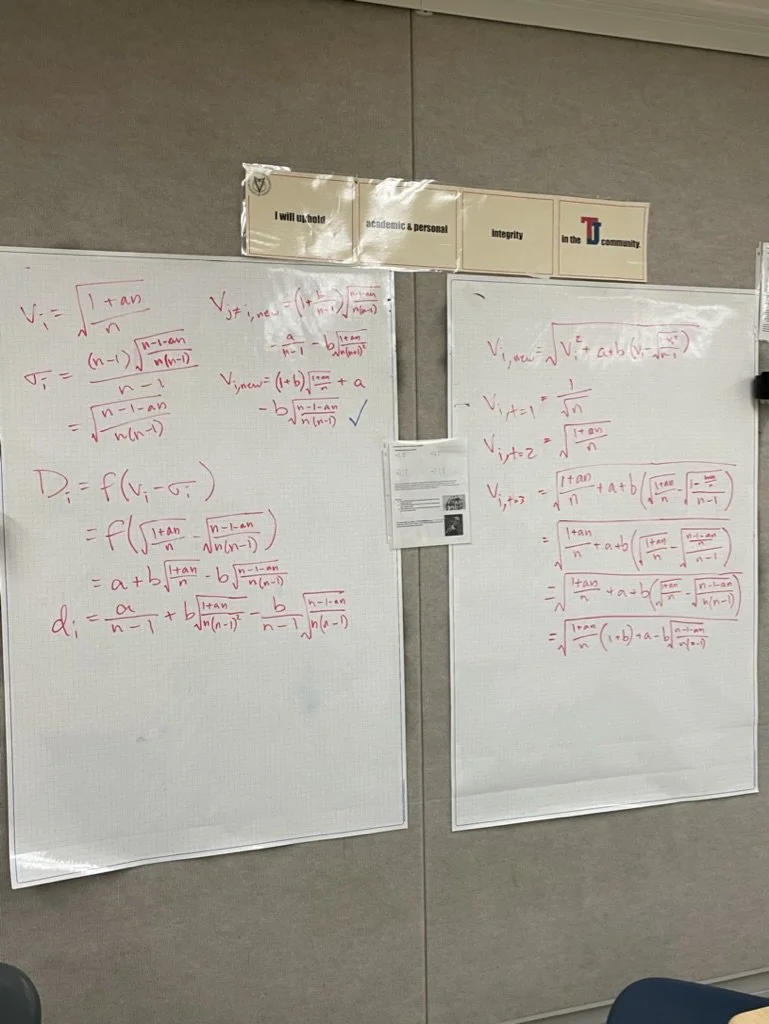 I will uphold
academic & personal
integrity
in the TJ community.
Vᵢ = √((1+an)/n)
σᵢ = ((n-1)√((n-1-an)/(n(n-1))))/(n-1)
= √((n-1-an)/(n(n-1)))
Dᵢ = f(Vᵢ - σᵢ)
= f(√((1+an)/n) - √((n-1-an)/(n(n-1))))
= a + b√((1+an)/n) - b√((n-1-an)/(n(n-1)))
dᵢ = a/(n-1) + b√((1+an)/(n(n-1)²)) - b/(n-1) √((n-1-an)/(n(n-1)))
V_{j≠i,new} = (1 + b/(n-1))√((n-1-an)/(n(n-1)))
- a/(n-1) - b√((1+an)/(n(n-1)²))
V_{i,new} = (1+b)√((1+an)/n) + a
- b√((n-1-an)/(n(n-1))) ✓
V_{i,new} = √(Vᵢ² + a+b(Vᵢ - √((1-Vᵢ²)/(n-1))))
V_{i,t=1} = 1/√n
V_{i,t=2} = √((1+an)/n)
V_{i,t=3} = √((1+an)/n + a + b(√((1+an)/n) - √((1-(1+an)/n)/(n-1))))
= √((1+an)/n + a + b(√((1+an)/n) - √(((n-1-an)/n)/(n-1))))
= √((1+an)/n + a + b(√((1+an)/n) - √((n-1-an)/(n(n-1)))))
= √((1+an)/n (1+b) + a - b√((n-1-an)/(n(n-1))))